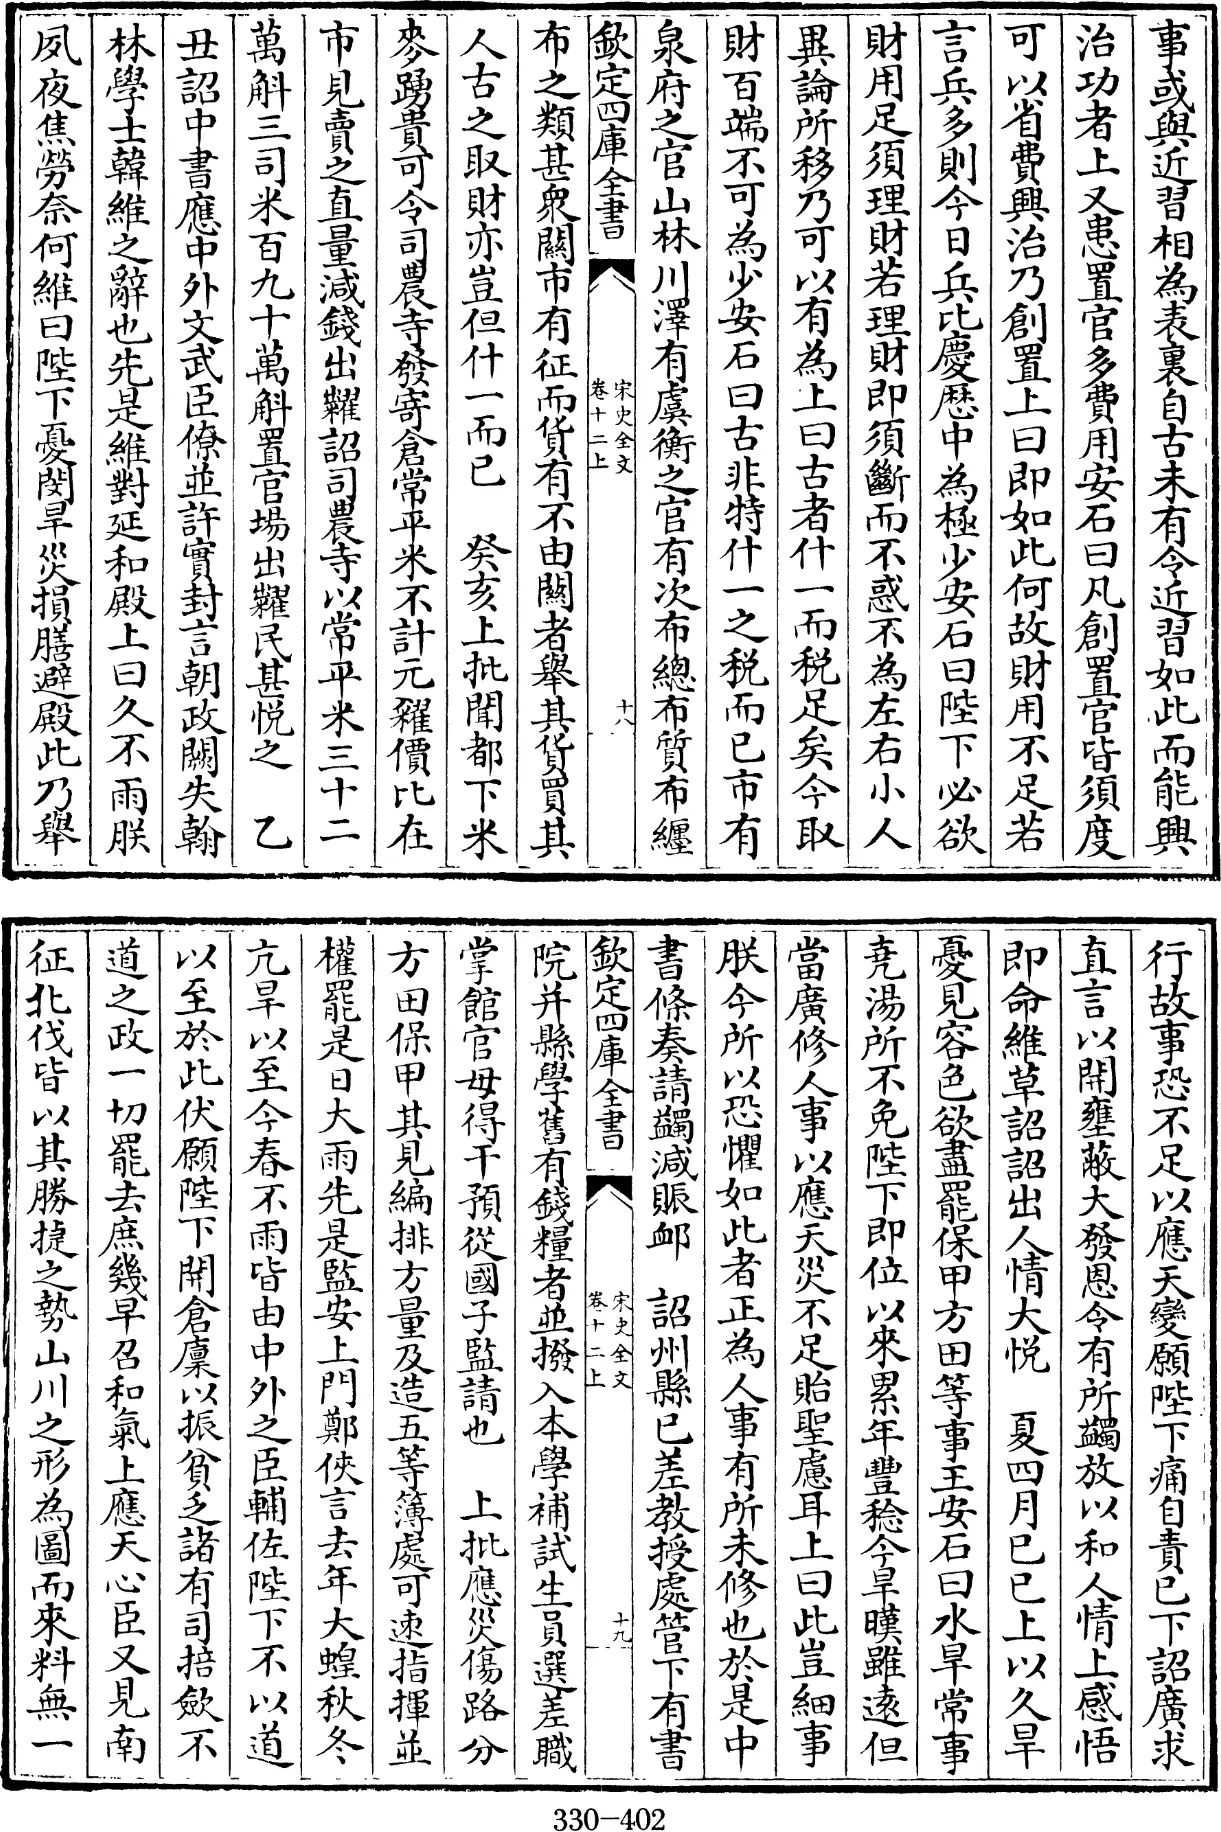 事或與近習相為表裏自古未有令近習如此而能興
治功者上又患置官多費用安石曰凡創置官皆須度
可以省費興治乃創置上曰即如此何故財用不足若
言兵多則今日兵比慶厯中為極少安石曰陛下必欲
財用足須理財若理財即須斷而不惑不為左右小人
異論所移乃可以有為上曰古者什一而税足矣今取
財百端不可為少安石曰古非特什一之税而已市有
泉府之官山林川澤有虞衡之官有次布總布質布㕓
欽定四庫全書
宋史全文
卷十二上
十八
布之類甚衆關市有征而貨有不由關者舉其貨買其
人古之取財亦豈但什一而已　癸亥上批聞都下米
麥踴貴可令司農寺發寄倉常平米不計元糴價比在
市見賣之直量減錢出糶詔司農寺以常平米三十二
萬斛三司米百九十萬斛置官場出糶民甚悦之　乙
丑詔中書應中外文武臣僚並許實封言朝政闕失翰
林學士韓維之辭也先是維對延和殿上曰久不雨朕
夙夜焦勞奈何維曰陛下憂閔旱災損膳避殿此乃舉
行故事恐不足以應天變願陛下痛自責已下詔廣求
直言以開壅蔽大發恩令有所蠲放以和人情上感悟
即命維草詔詔出人情大悦　夏四月已已上以久旱
憂見容色欲盡罷保甲方田等事王安石曰水旱常事
堯湯所不免陛下即位以來累年豐稔今旱暵雖逺但
當廣修人事以應天災不足貽聖慮耳上曰此豈細事
朕今所以恐懼如此者正為人事有所未修也於是中
書條奏請蠲減賑卹　詔州縣已差教授處管下有書
欽定四庫全書
宋史全文
卷十二上
十九
院并縣學舊有錢糧者並撥入本學補試生員選差職
掌館官毋得干預從國子監請也　上批應災傷路分
方田保甲其見編排方量及造五等簿處可速指揮並
權罷是日大雨先是監安上門鄭俠言去年大蝗秋冬
亢旱以至今春不雨皆由中外之臣輔佐陛下不以道
以至於此伏願陛下開倉廩以振貧乏諸有司掊歛不
道之政一切罷去庶幾早召和氣上應天心臣又見南
征北伐皆以其勝捷之勢山川之形為圖而來料無一
330-402